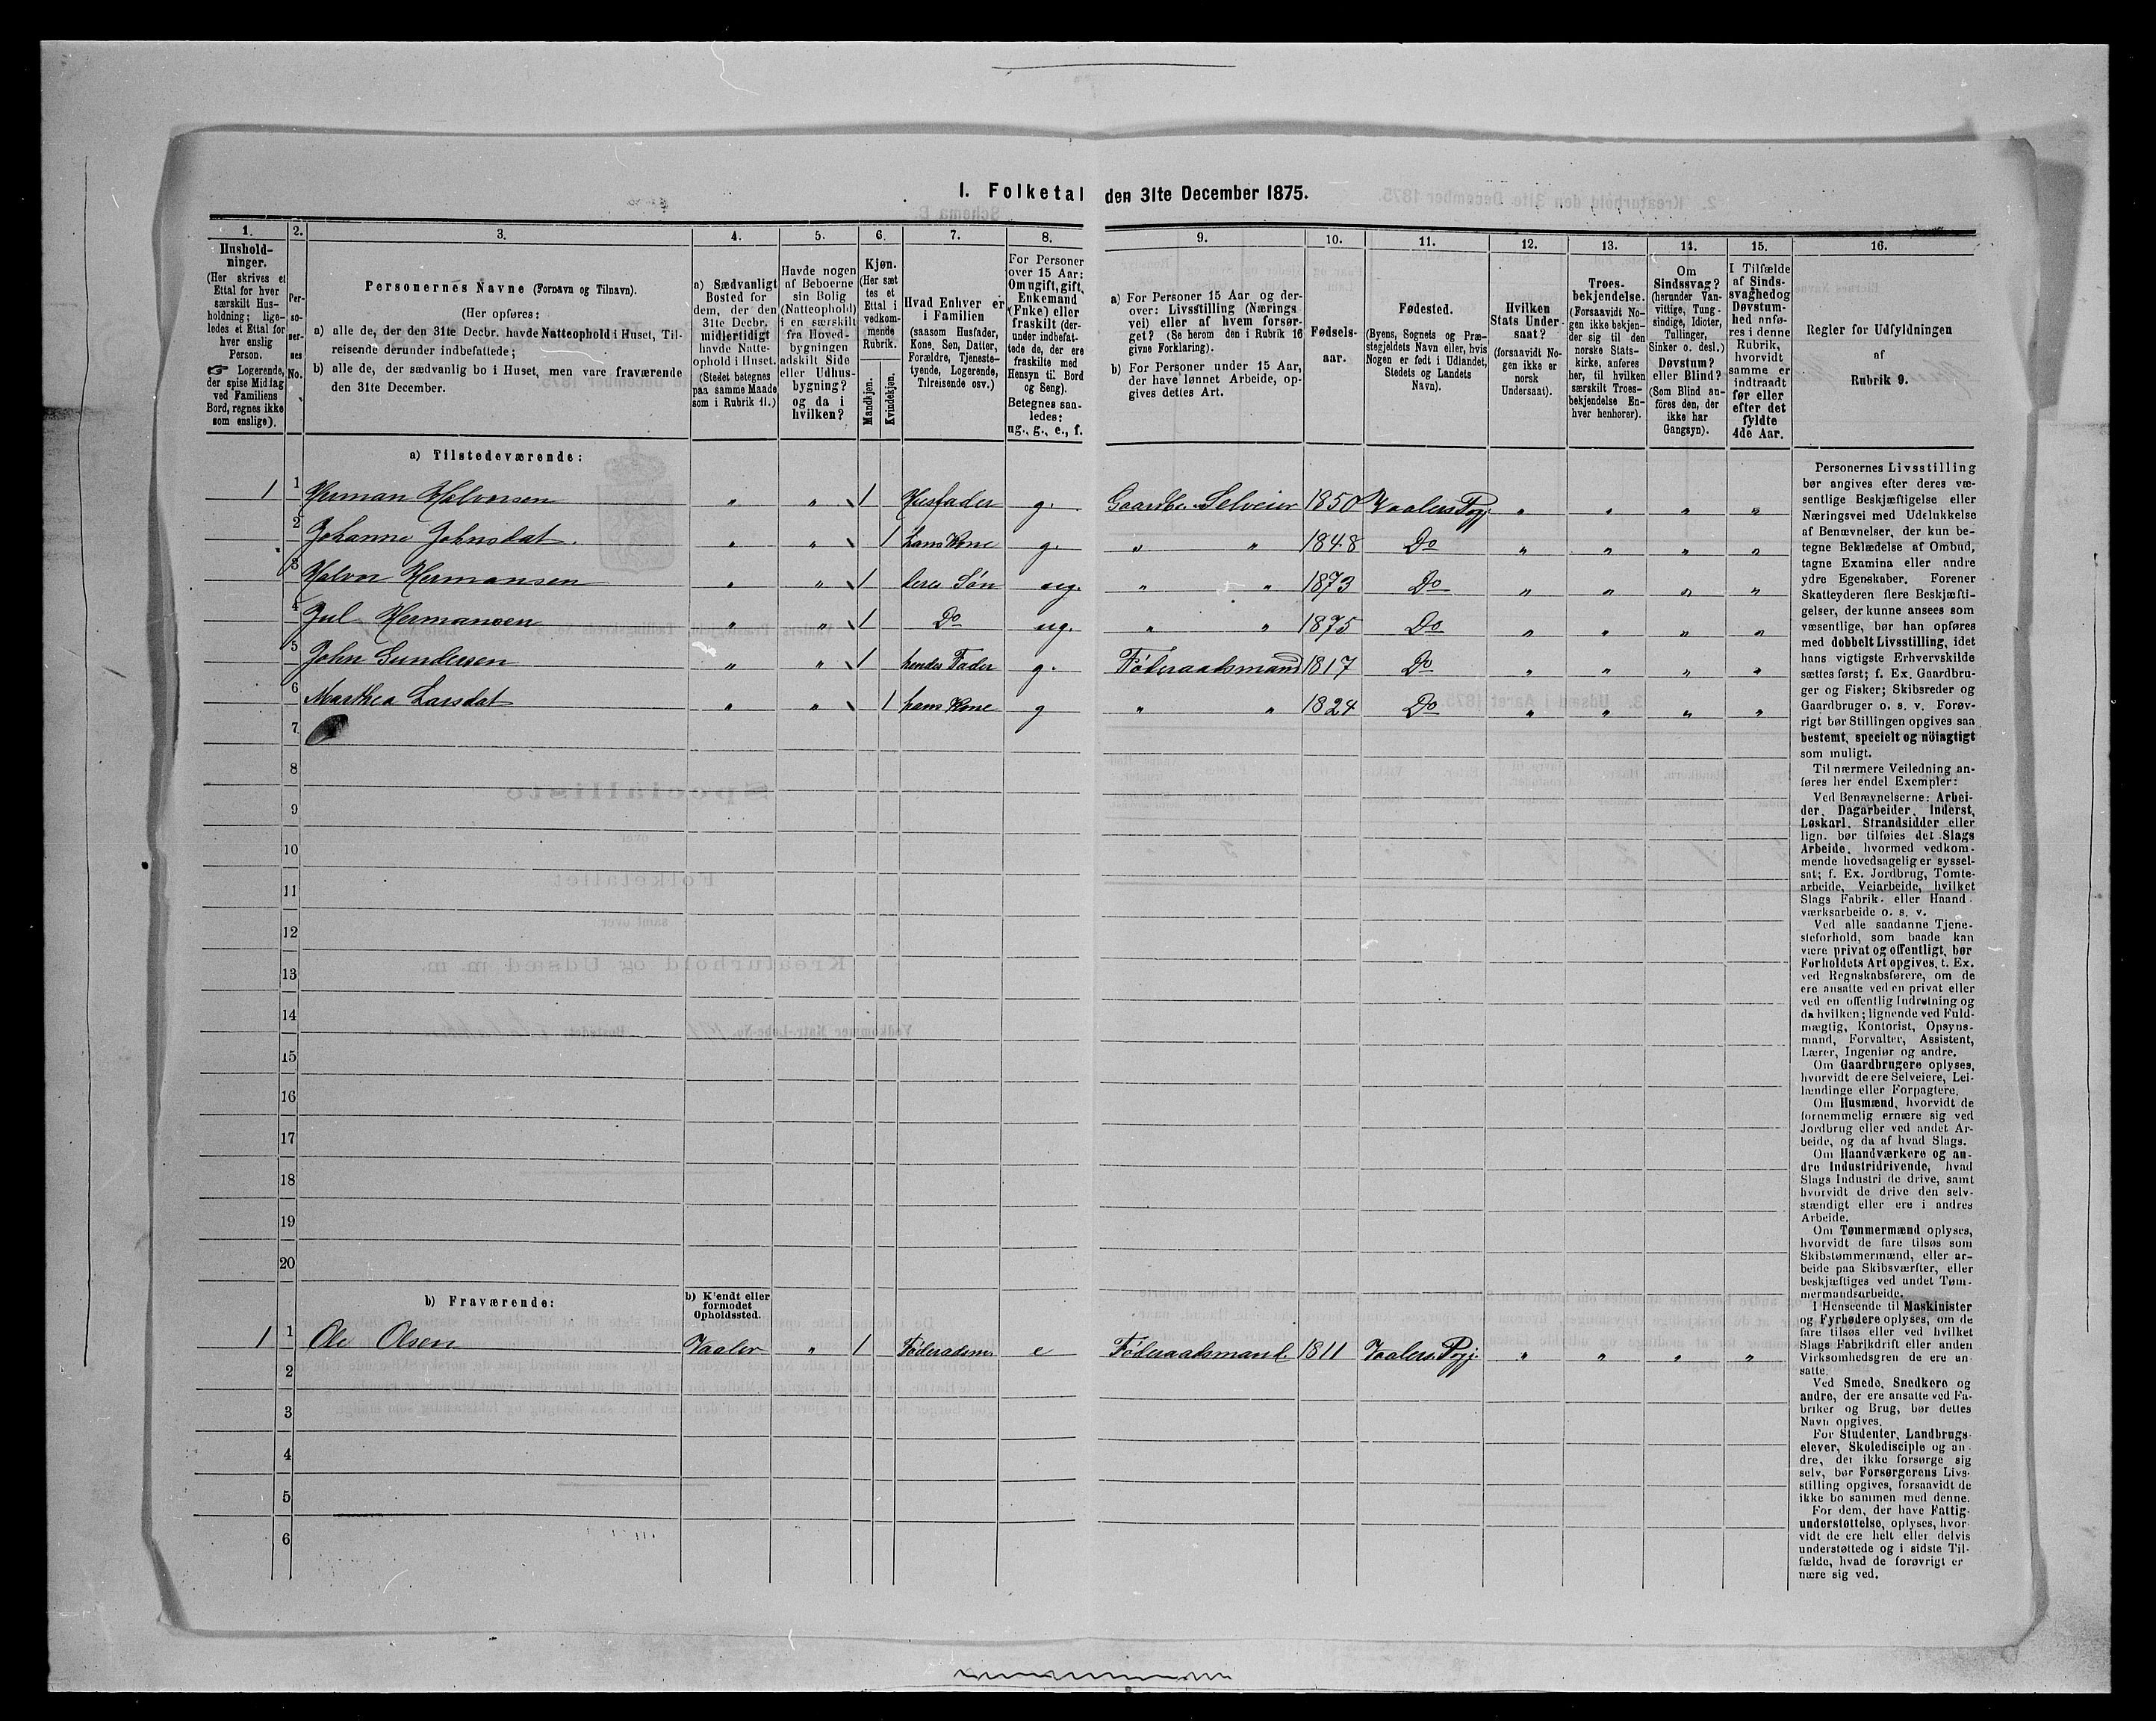 1. Folketal den 31te December 1875.
1. 2. 3. 4. 5. 6. 7. 8. 9. 10. 11. 12. 13. 14. 15. 16.
Hushold-
ninger.
(Her skrives et
Ettal for hver
særskilt Hus-
holdning; lige-
ledes et Ettal for
hver enslig
Person.
☞ Logerende,
der spise Middag
ved Familiens
Bord, regnes ikke
som enslige).
Per-
so-
ner-
nes
No.
Personernes Navne (Fornavn og Tilnavn).
(Her opføres:
a) alle de, der den 31te Decbr. havde Natteophold i Huset, Til-
reisende derunder indbefattede;
b) alle de, der sædvanlig bo i Huset, men vare fraværende
den 31te December.
a) Sædvanligt
Bosted for
dem, der den
31te Decbr.
midlertidigt
havde Natte-
ophold i Huset.
(Stedet betegnes
paa samme Maade
som i Rubrik 11.)
Havde nogen
af Beboerne
sin Bolig
(Natteophold)
i en særskilt
fra Hoved-
bygningen
adskilt Side
eller Udhus-
bygning?
og da i
hvilken?
Kjøn.
(Her sæt
tes et
Ettal i
vedkom-
mende
Rubrik.
Mandkjøn.
Kvindekjøn.
Hvad Enhver er
i Familien
(saasom Husfader,
Kone, Søn, Datter,
Forældre, Tjeneste-
tyende, Logerende,
Tilreisende osv.)
For Personer
over 15 Aar:
Om ugift, gift,
Enkemand
(Enke) eller
fraskilt (der-
under indbefat-
tede de, der ere
fraskilte med
Hensyn til Bord
og Seng).
Betegnes saa-
ledes:
ug., g., e., f.
a) For Personer 15 Aar og der-
over: Livsstilling (Nærings
vei) eller af hvem forsør-
get? (Se herom den i Rubrik 16
givne Forklaring).
b) For Personer under 15 Aar,
der have lønnet Arbeide, op-
gives dettes Art.
Fødsels-
aar.
Fødested.
(Byens, Sognets og Præ-
stegjeldets Navn eller, hvis
Nogen er født i Udlandet,
Stedets og Landets
Navn).
Hvilken
Stats Under-
saat?
(forsaavidt No-
gen ikke er
norsk
Undersaat).
Troes-
bekjendelse.
(Forsaavidt No-
gen ikke bekjen-
der sig til den
norske Stats-
kirke, anføres
her, til hvilken
særskilt Troes-
bekjendelse En-
hver henhører).
Om
Sindssvag?
(herunder Van-
vittige, Tung-
sindige, Idioter,
Tullinger,
Sinker o. desl.)
Døvstum?
eller Blind?
(Som Blind an-
føres den, der
ikke har
Gangsyn).
I Tilfælde
af Sinds-
svaghed og
Døvstum-
hed anfø-
res i denne
Rubrik,
hvorvidt
samme er
indtraadt
før eller
efter det
fyldte
4de Aar.
Regler for Udfyldningen
af
Rubrik 9.
a) Tilstedeværende:
1 1 Herman Halvorsen " " 1 Husfader g. Gaardbr. Selveier 1850 Vaalers Pgj. " " " "
2 Johanne Johnsdat. " " 1 hans Kone g. " " 1848 Do " " " "
3 Halvor Hermansen " " 1 deres Søn ug. " " 1873 Do " " " "
4 Jul Hermansen " " 1 Do ug. " " 1875 Do " " " "
5 John Gundersen " " 1 hendes Fader g. Føderaadsmand 1817 Do " " " "
6 Marthea Larsdat " " 1 hans Kone g " " 1824 Do " " " "
7
8
9
10
11
12
13
14
15
16
17
18
19
20
b) Fraværende:
b) Kjendt eller
formodet
Opholdssted.
1 1 Ole Olsen Vaaler " 1 Føderadsm. e Føderaadsmand 1811 Vaalers Pgj. " " " "
2
3
4
5
6
Personernes Livsstilling
bør angives efter deres væ-
sentlige Beskjæftigelse eller
Næringsvei med Udelukkelse
af Benævnelser, der kun be-
tegne Beklædelse af Ombud,
tagne Examina eller andre
ydre Egenskaber. Forener
Skatteyderen flere Beskjæfti-
gelser, der kunne ansees som
væsentlige, bør han opføres
med dobbelt Livsstilling, idet
hans vigtigste Erhvervskilde
sættes først; f. Ex. Gaardbru-
ger og Fisker; Skibsreder og
Gaardbruger o. s. v. Forøv-
rigt bør Stillingen opgives saa
bestemt, specielt og nöiagtigt
som muligt.
Til nærmere Veiledning an-
føres her endel Exempler:
Ved Benævnelserne: Arbei-
der, Dagarbeider, Inderst,
Løskarl, Strandsidder eller
lign. bør tilføies det Slags
Arbeide, hvormed vedkom-
mende hovedsagelig er syssel-
sat; f. Ex. Jordbrug, Tomte-
arbeide, Veiarbeide, hvilket
Slags Fabrik- eller Haand-
værksarbeide o. s. v.
Ved alle saadanne Tjene-
steforhold, som baade kan
være privat og offentligt, bør
Forholdets Art opgives, t. Ex.
ved Regnskabsførere, om de
ere ansatte ved en privat eller
ved en offentlig Indretning og
da hvilken; lignende ved Fuld-
mægtig, Kontorist, Opsyns-
mand, Forvalter, Assistent,
Lærer, Ingeniør og andre.
Om Gaardbrugere oplyses,
hvorvidt de ere Selveiere, Lei-
lændinge eller Forpagtere.
Om Husmænd, hvorvidt de
fornemmelig ernære sig ved
Jordbrug eller ved andet Ar-
beide, og da af hvad Slags.
Om Haandværkere og an-
dre Industridrivende, hvad
Slags Industri de drive, samt
hvorvidt de drive den selv-
stændigt eller ere i andres
Arbeide.
Om Tømmermænd oplyses,
hvorvidt de fare tilsøs som
Skibstømmermænd, eller ar-
beide paa Skibsværfter, eller
beskjæftiges ved andet Tøm-
mermandsarbeide.
I Henseende til Maskinister
og Fyrbødere oplyses, om de
fare tilsøs eller ved hvilket
Slags Fabrikdrift eller anden
Virksomhedsgren de ere an-
satte.
Ved Smede, Snedkere og
andre, der ere ansatte ved Fa-
briker og Brug, bør dettes
Navn opgives.
For Studenter, Landbrugs-
elever, Skoledisciple og an-
dre, der ikke forsørge sig
selv, bør Forsørgerens Livs-
stilling opgives, forsaavidt de
ikke bo sammen med denne.
For dem, der have Fattig-
understøttelse, oplyses, hvor-
vidt de ere helt eller delvis
understøttede og i sidste Til-
fælde, hvad de forøvrigt er
nære sig ved.